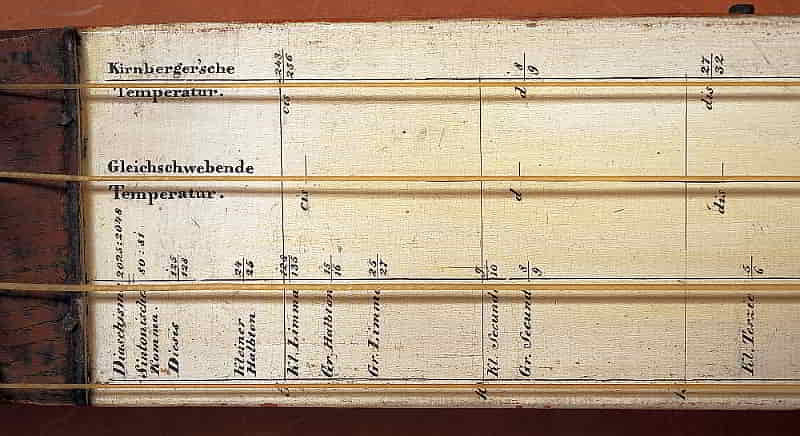 Kirnberger'sche
Temperatur.
243
256
cis
8
9
d
27
32
dis
Gleichschwebende
Temperatur.
cis
d
dis
Diaschysma 2025:2048
Sintonische
Komma. 80:81
Diesis 125
128
Kleiner
Halbton 24
25
Kl. Limma 128
135
Gr. Halbton 15
16
Gr. Limma 25
27
Kl. Secund. 9
10
Gr. Secund. 8
9
Kl. Terzie 5
6